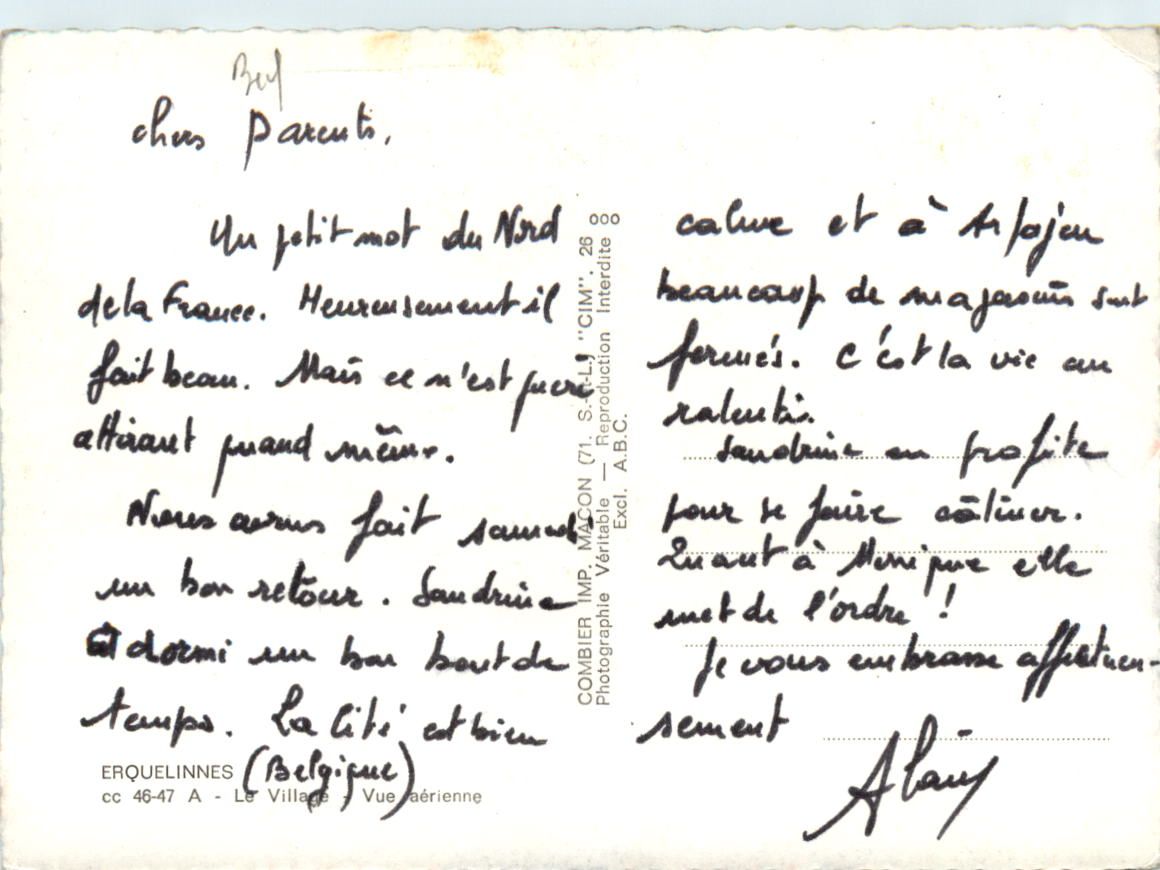 Bel
chers Parents,
Un petit mot du Nord
de la France. Heureusement il
fait beau. Mais ce n'est guère
attirant quand même.
Nous avons fait samedi
un bon retour. Sandrine
a dormi un bon bout de
temps. La Cité est bien
ERQUELINNES (Belgique)
cc 46-47 A - Le Village - Vue aérienne
COMBIER IMP. MACON (71. S.-et-L.) "CIM". 26 000
Photographie Véritable — Reproduction Interdite
Excl. A.B.C.
calme et à Arpajon
beaucoup de magasins sont
fermés. C'est la vie au
ralenti.
Sandrine en profite
pour se faire câliner.
Quant à Monique elle
met de l'ordre !
Je vous embrasse affectueu-
sement
Alain